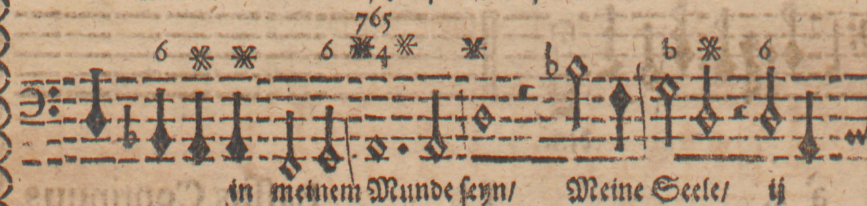 765
6 6 4 b b 6
in meinem Munde seyn/ Meine Seele/ ij